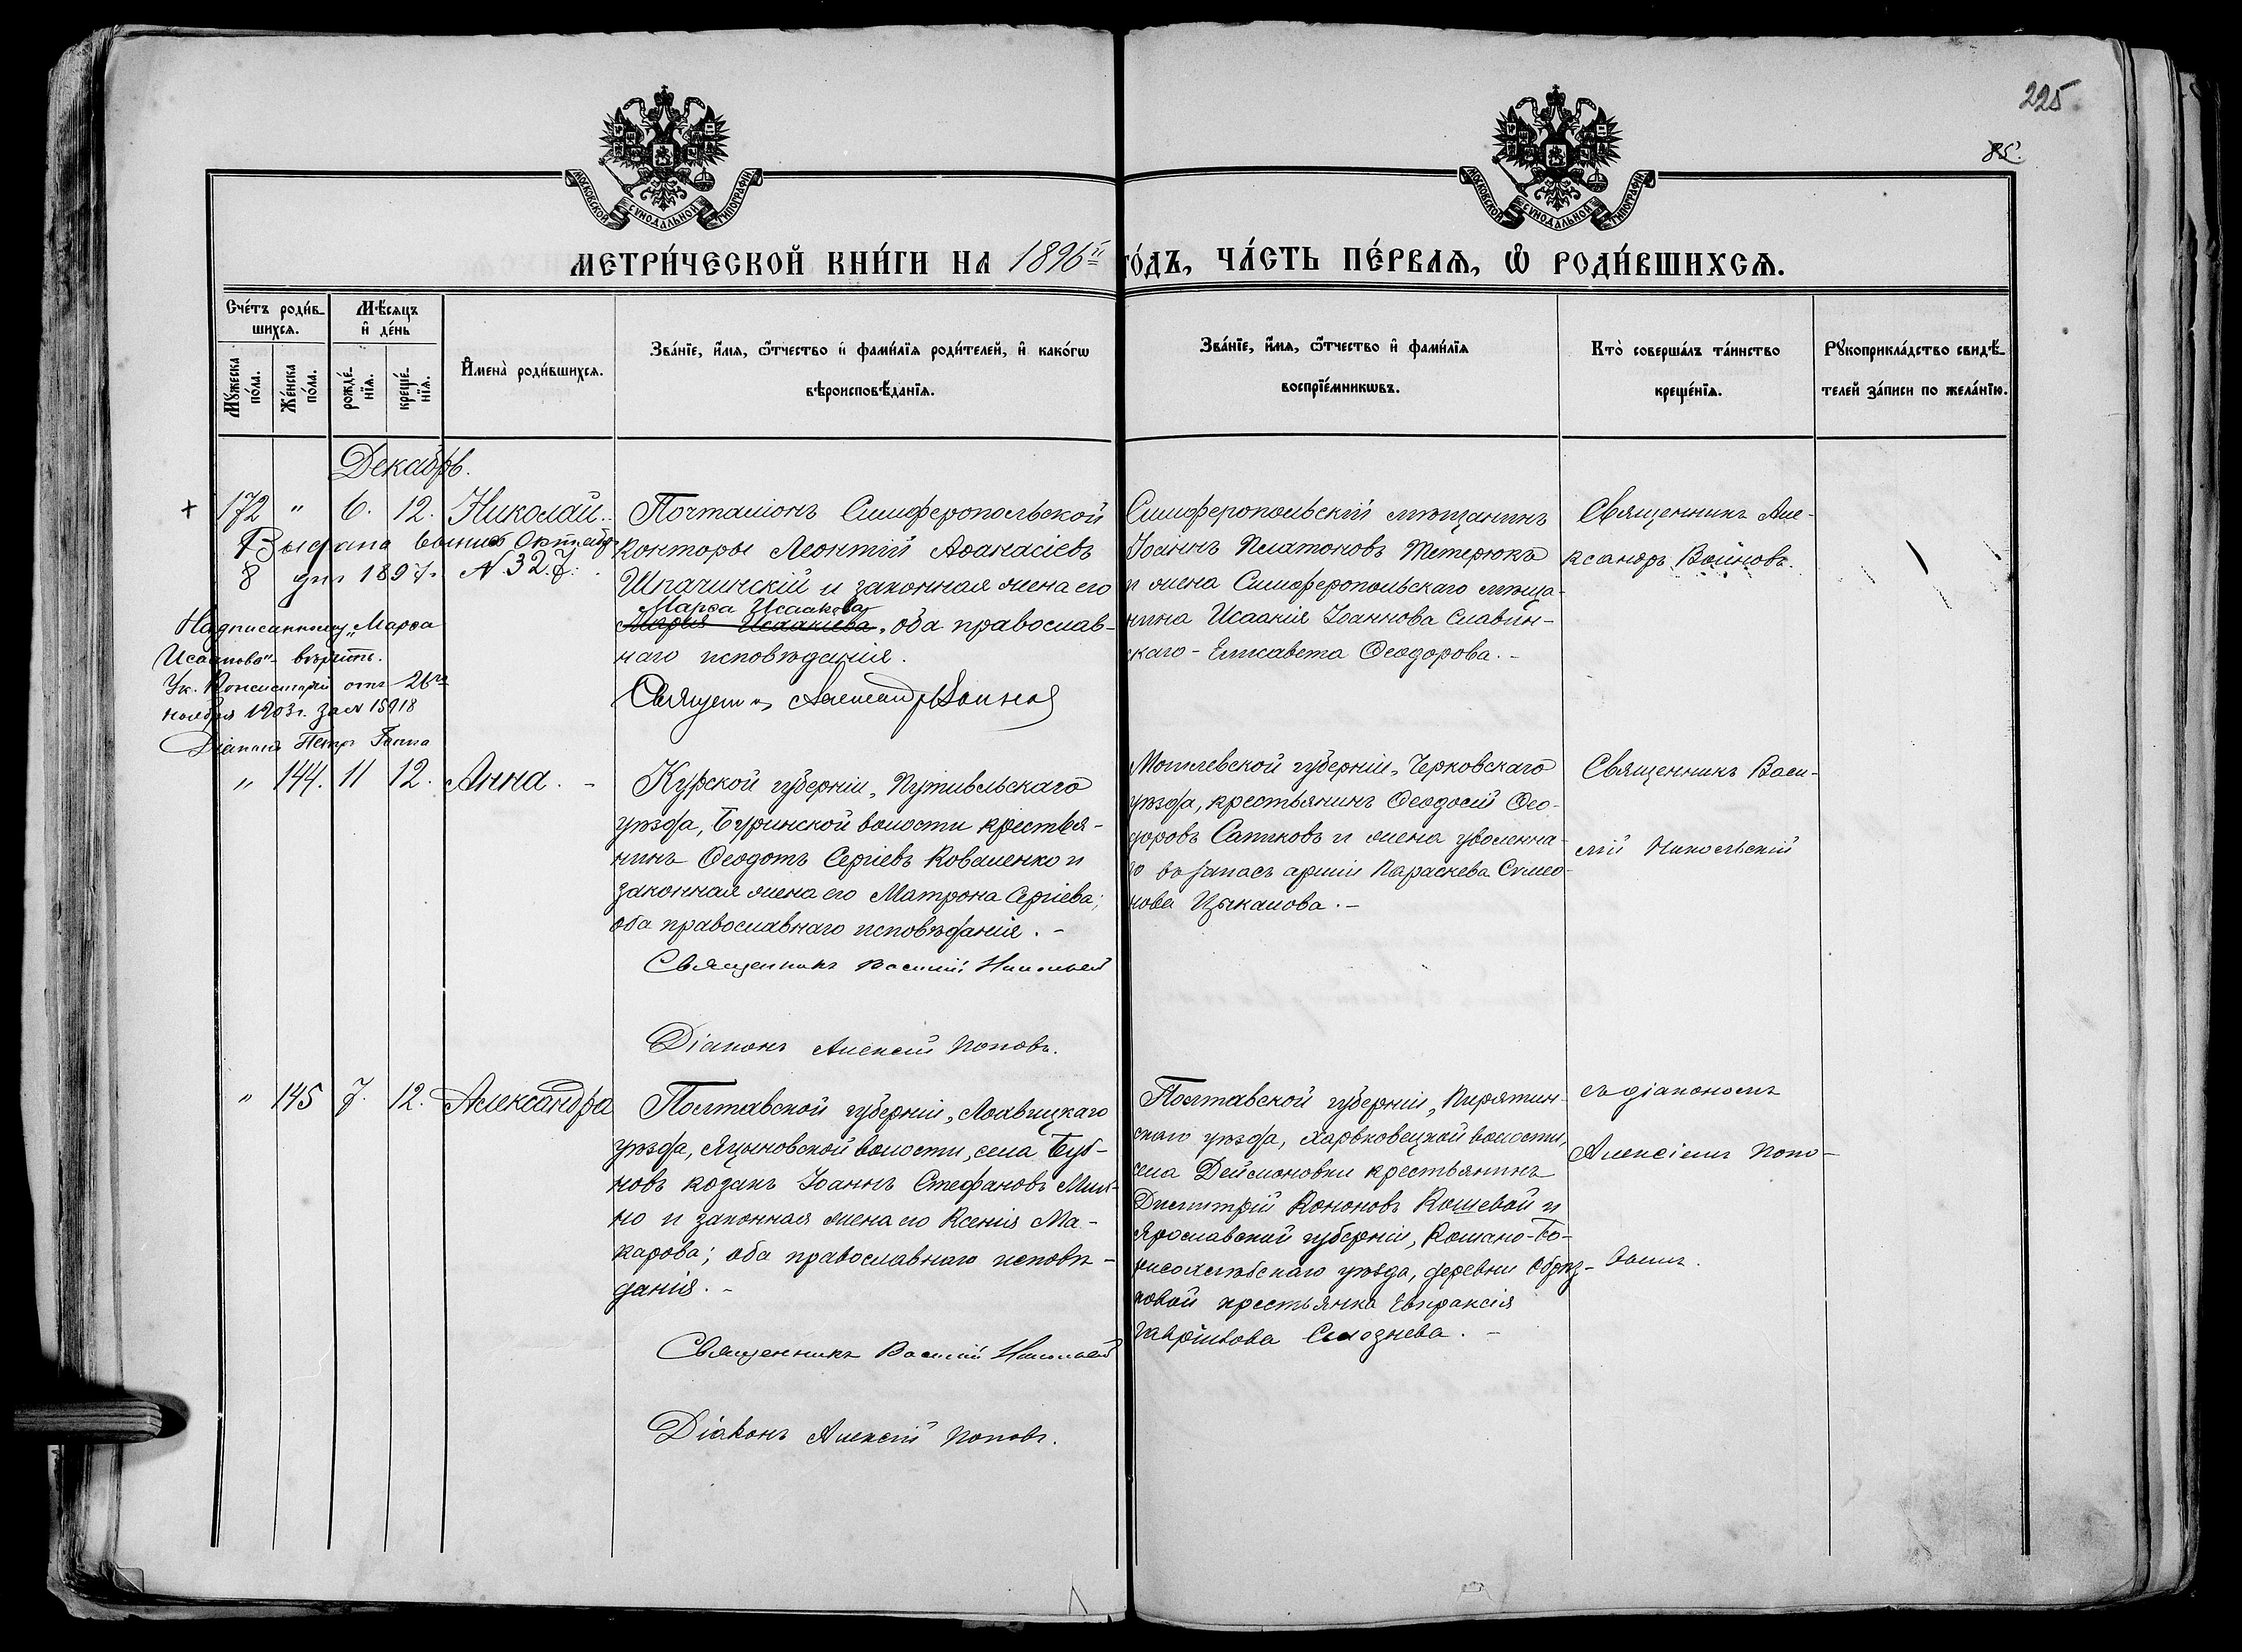 225
85.
МОСКОВСКОЙ СУНОДАЛЬНОЙ ТИПОГРАФІИ
МОСКОВСКОЙ СУНОДАЛЬНОЙ ТИПОГРАФІИ
МЕТРИ́ЧЕСКОЙ КНИ́ГИ НА 1896й го́дъ, ЧА́СТЬ ПЕ́РВАѦ, Ѡ҆ РОДИ́ВШИХСѦ.
Сче́тъ роди́вшихсѧ.
Мѣ́сѧцъ и҆ де́нь
Мꙋ́жеска по́ла.
Же́нска по́ла.
рожде́нїѧ.
креще́нїѧ.
И҆мена̀ роди́вшихсѧ.
Зва́нїе, и҆́мѧ, ѻ҆́тчество и҆ фами́лїѧ роди́телей, и҆ како́гѡ
вѣроисповѣ́данїѧ.
Зва́нїе, и҆́мѧ, ѻ҆́тчество и҆ фами́лїѧ
воспрїе́мникѡвъ.
Кто̀ соверша́лъ та́инство
креще́нїѧ.
Рꙋкоприкла́дство свидѣ́-
телей за́писи по жела́нїю.
Декабрь.
172 " 6. 12. Николай.
Почталіонъ Симферопольской
конторы Леонтій Аѳанасіевъ
Шпачинскій и законная жена его
Марѳа Исаакова
Марья Исаакіева, оба православ-
наго исповѣданія.
Священ Александръ Войновъ
Симферопольскій мѣщанинъ
Іоаннъ Платоновъ Тетерюкъ
и жена Симферопольскаго мѣща-
нина Исаакія Іоаннова Славин-
скаго - Елисавета Ѳеодорова. -
Священникъ Але-
ксандръ Войновъ.
Выдана выпись Октября
8 дня 1897 г. N 327.
Надписанному „Марѳа
Исаакова" - вѣрить.
Ук. Консисторіи отъ 26го
ноября 1903 г. за N 15918
Діаконъ Петръ
" 144. 11 12. Анна. -
Курской губерніи, Путивльскаго
уѣзда, Буринской волости крестья-
нинъ Ѳеодотъ Сергіевъ Коваленко и
законная жена его Матрона Сергіева;
оба православнаго исповѣданія. -
Священникъ Василій Никольскій
Діаконъ Алексій Поповъ.
Могилевской губерніи, Черковскаго
уѣзда, крестьянинъ Ѳеодосій Ѳео-
доровъ Сатиковъ и жена уволенна-
го въ запасъ арміи Параскева Симео-
нова Цыкалова. -
Священникъ Васи-
лій Никольскій
" 145 7. 12. Александра
Полтавской губерніи, Лохвицкаго
уѣзда, Яцыновской волости, села Буб-
новъ козакъ Іоаннъ Стефановъ Мих-
но и законная жена его Ксенія Ма-
карова; оба православнаго исповѣ-
данія. -
Священникъ Василій Никольскій
Діаконъ Алексій Поповъ.
Полтавской губерніи, Пирятин-
скаго уѣзда, Харьковецкой волости,
села Деймоновки крестьянинъ
Димитрій Кононовъ Кошевой и
Ярославской губерніи, Романо-Бо-
рисоглѣбскаго уѣзда, деревни Образ-
цовой крестьянка Евпраксія
Гаврилова Смознева. -
съ діакономъ
Алексіемъ Попо-
вымъ.